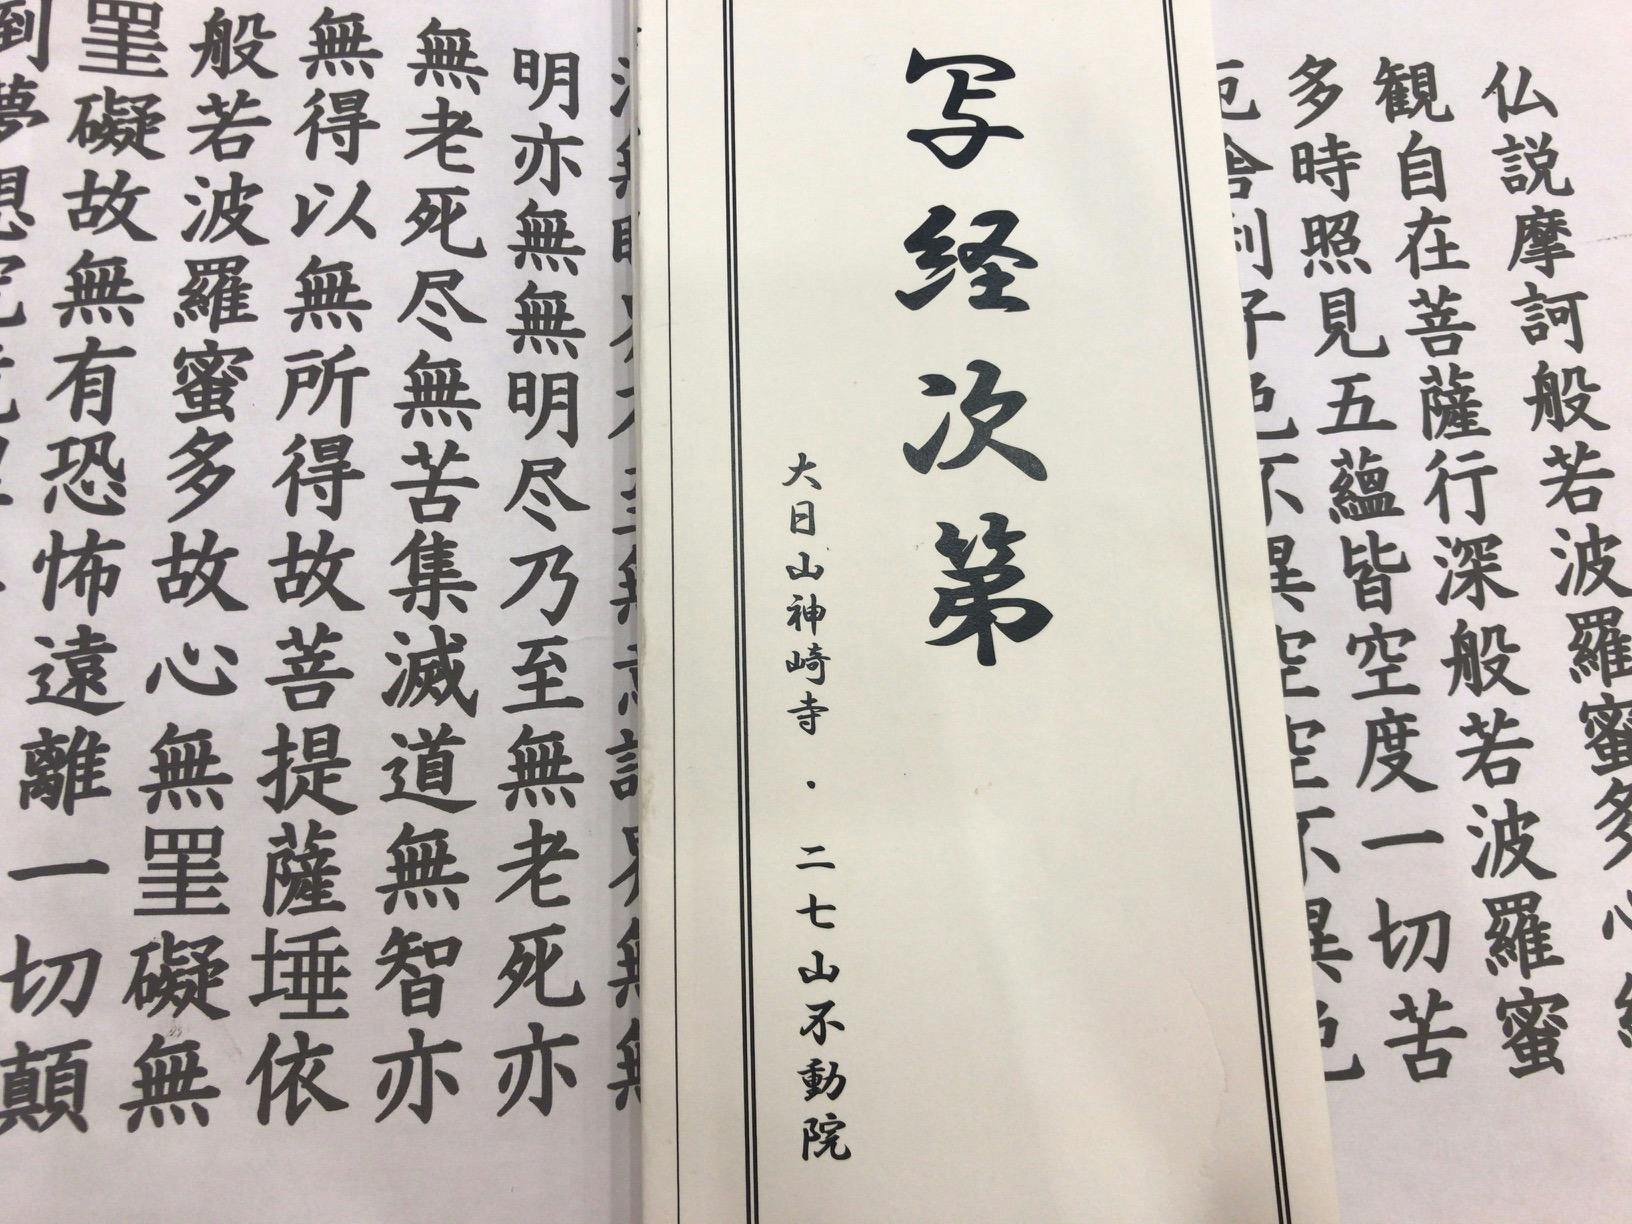 仏説摩訶般若波羅蜜多心経
観自在菩薩行深般若波羅蜜
多時照見五蘊皆空度一切苦
厄舎利子色不異空空不異色
写経次第
大日山神崎寺・二七山不動院
明亦無無明尽乃至無老死亦
無老死尽無苦集滅道無智亦
無得以無所得故菩提薩埵依
般若波羅蜜多故心無罣礙無
罣礙故無有恐怖遠離一切顛
倒夢想